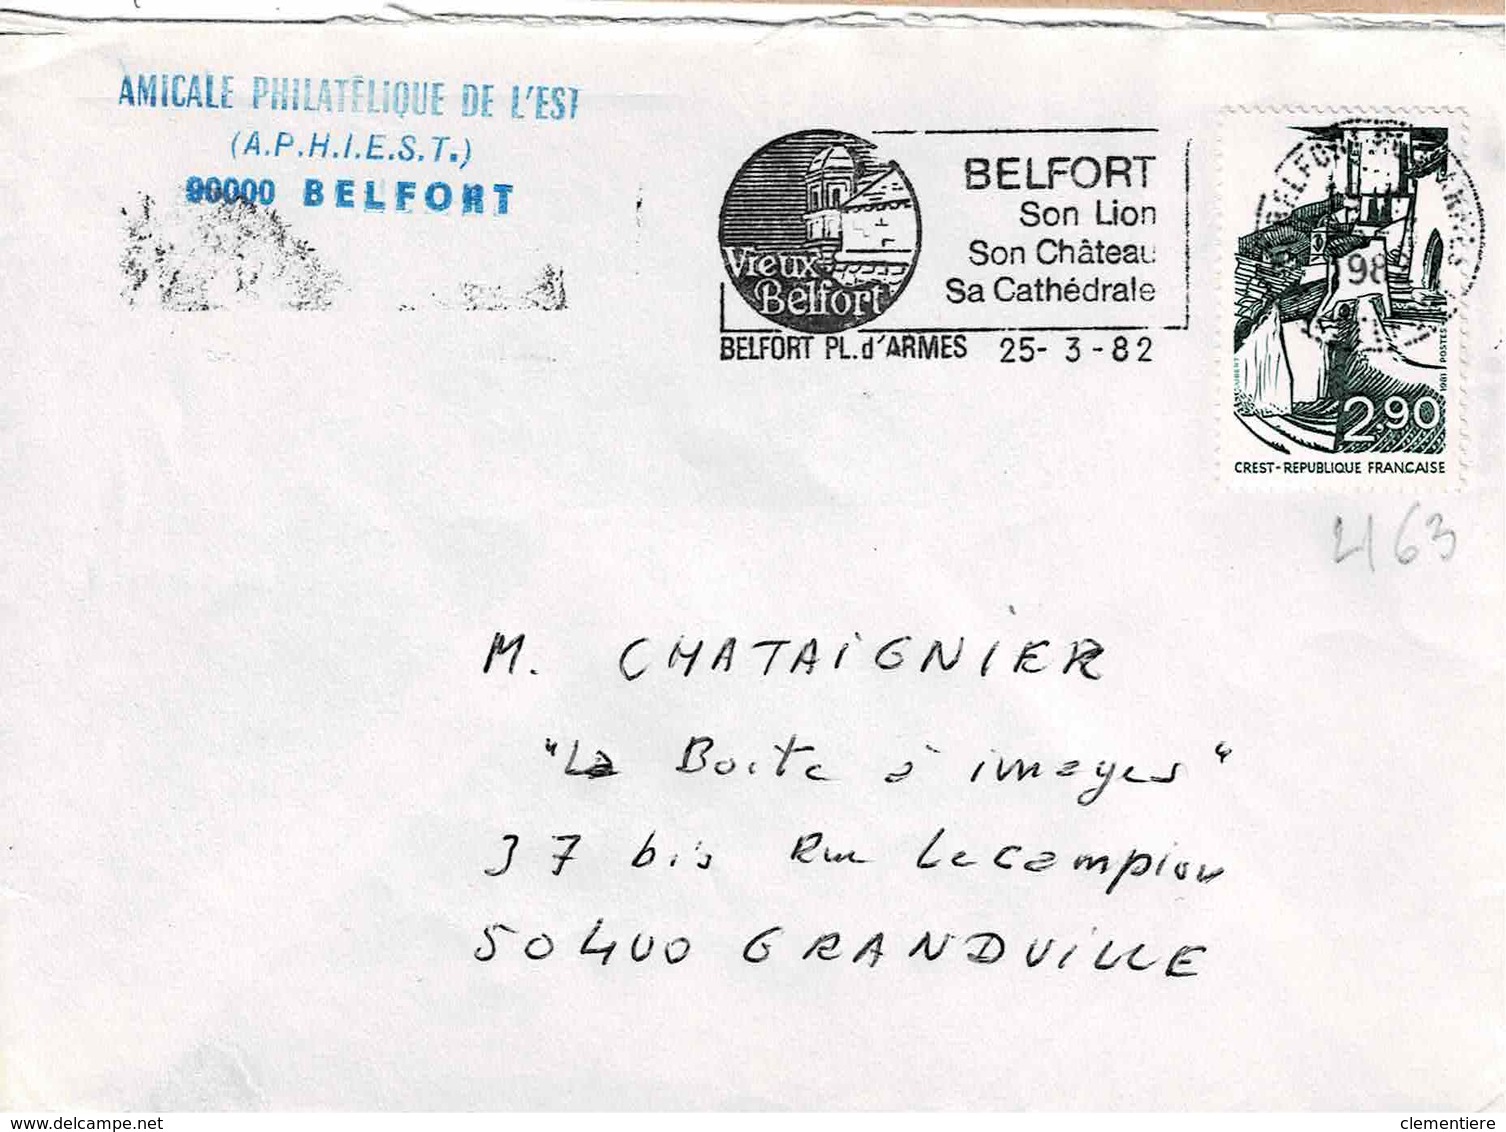 AMICALE PHILATÉLIQUE DE L'EST
(A.P.H.I.E.S.T.)
90000 BELFORT
Vieux
Belfort
BELFORT
Son Lion
Son Château
Sa Cathédrale
BELFORT PL.d'ARMES 25-3-82
2,90
1981 POSTES
CREST-REPUBLIQUE FRANCAISE
2163
M. CHATAIGNIER
"La Boite à images"
37 bis Rue Lecampion
50400 GRANDVILLE
www.delcampe.net
clementiere